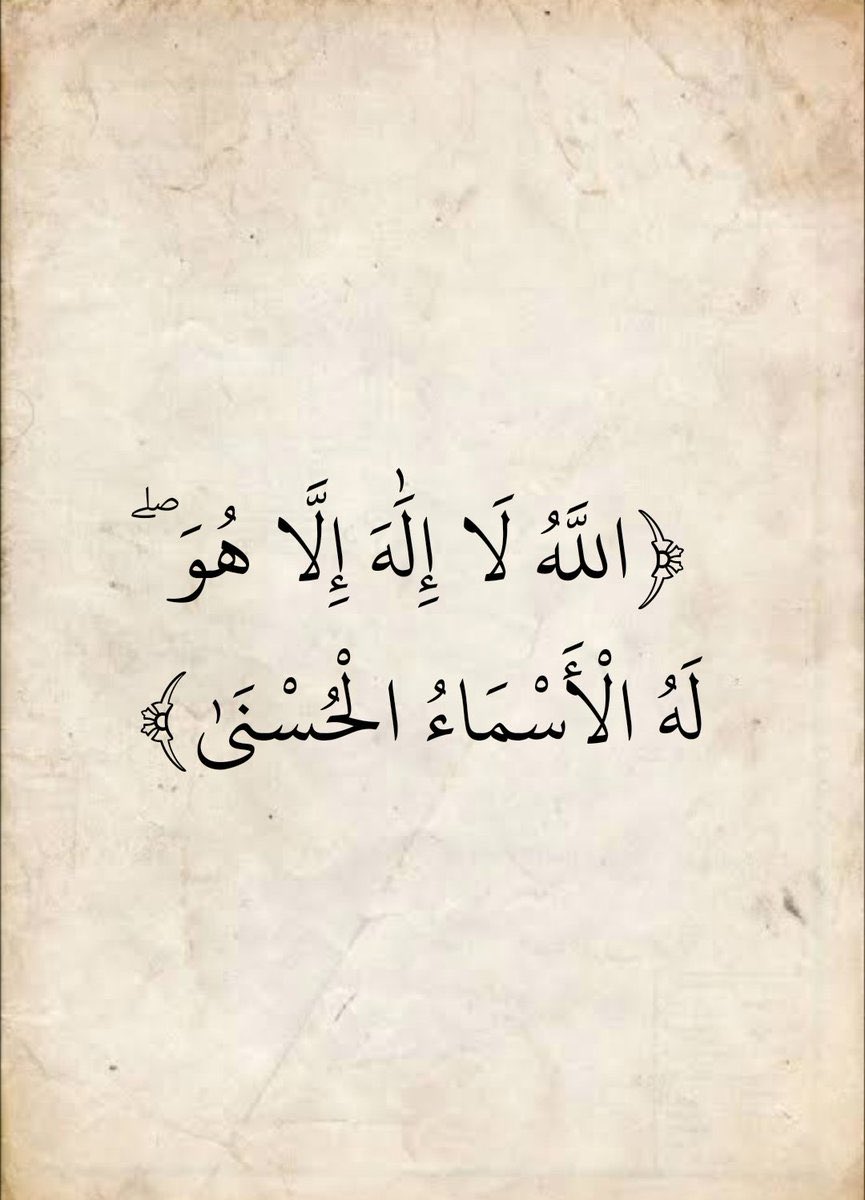 ﴿اللَّهُ لَا إِلَٰهَ إِلَّا هُوَ ۖ
لَهُ الْأَسْمَاءُ الْحُسْنَىٰ﴾